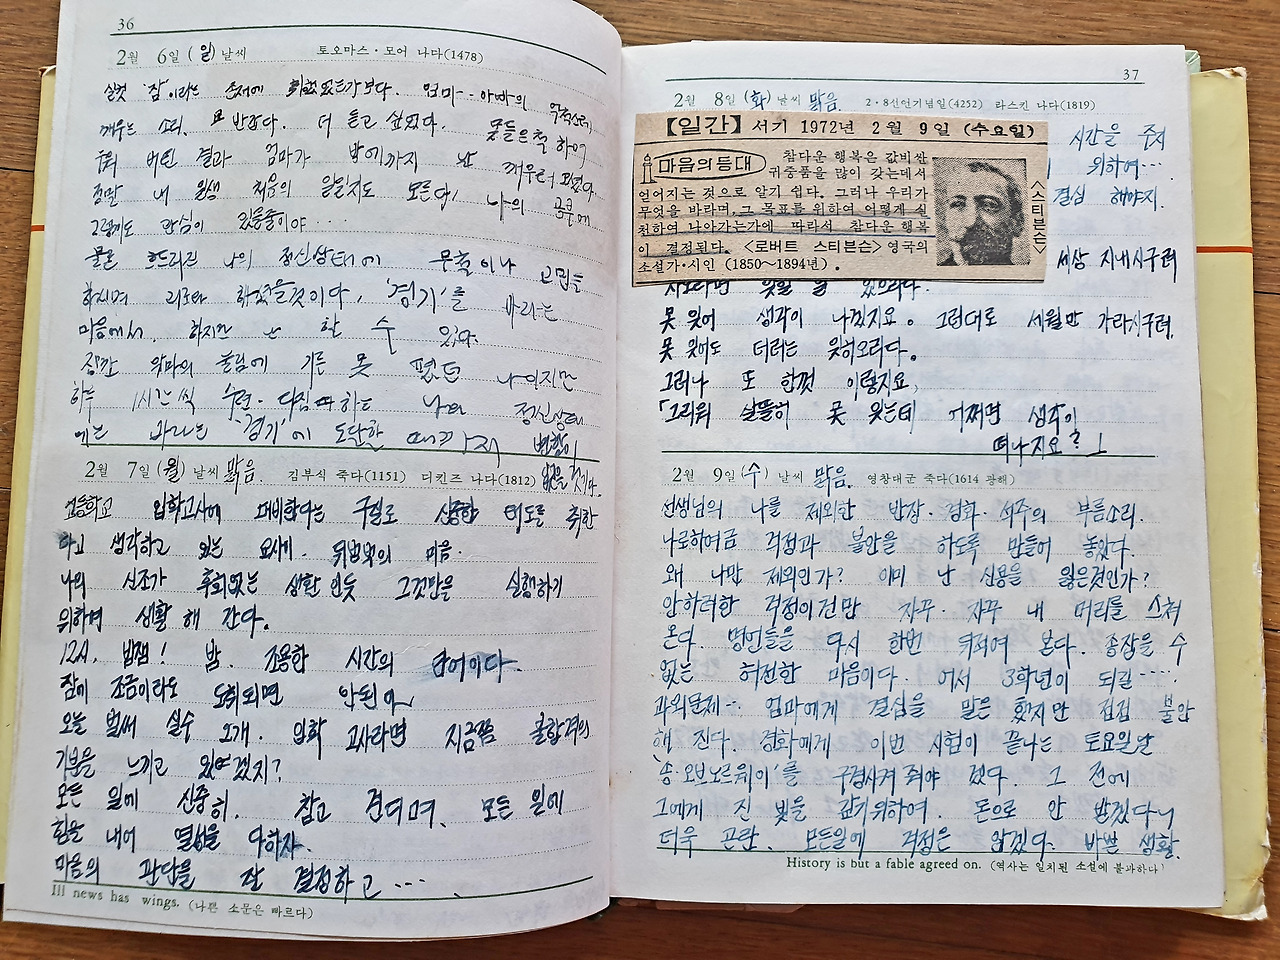 36
2월 6일 (일) 날씨 토오마스·모어 나다(1478)
실컷 '잠'이라는 존재에 취했었는가보다. 엄마·아빠의
깨우는 소리. 반갑다. 더 듣고 싶었다. 못들은척 하여
버린 결과 엄마가 밤에까지 난 깨우러 오셨다.
정말 내 일생 처음의 일일지도 모른다! 나의 공부에
그렇게도 관심이 있을줄이야 ···
물론 흐트러진 나의 정신상태에 무척이나 고민을
하시며 괴로와 하셨을것이다. '경기'를 바라는
마음에서. 하지만 난 할 수 있다.
잠깐 악마의 놀림에 기를 못 폈던 나이지만
하루 1시간씩 수련·다짐 하는 나의 정신상태
에는 바라는 '경기'에 도달할 때까지 변함이
없을것이다.
2월 7일 (월) 날씨 맑음. 김부식 죽다(1151) 디킨즈 나다(1812)
고등학교 입학고사에 대비한다는 구실로 신중한 태도를 취한
다고 생각하고 있는 요사이. 뒤범벅의 마음.
나의 신조가 후회없는 생활 인듯 그것만을 실행하기
위하며 생활 해 간다.
12시. 밤잼! 밤. 조용한 시간의 단어이다.
잠에 조금이라도 도취되면 안된다
오늘 벌써 실수 2개. 입학 고사라면 지금쯤 불합격의
기분을 느끼고 있겠지?
모든 일에 신중히. 참고 견디며. 모든 일에
힘을 내어 열성을 다하자.
마음의 판단을 잘 결정하고 ····.
Ill news has wings. (나쁜 소문은 빠르다)
37
2월 8일 (화) 날씨 맑음. 2·8선언기념일(4252) 라스킨 나다(1819)
시간을 주저
위하여···
결심 해야지.
【일간】 서기 1972년 2월 9일 (수요일)
마음의등대
참다운 행복은 값비싼
귀중품을 많이 갖는데서
얻어지는 것으로 알기 쉽다. 그러나 우리가
무엇을 바라며, 그 목표를 위하여 어떻게 실
천하여 나아가는가에 따라서 참다운 행복
이 결정된다. <로버트 스티븐슨> 영국의
소설가·시인 (1850~1894년).
<스티븐슨>
세상 지내시구려
사노라면 잊힐 날 있으리다.
못 잊어 생각이 나겠지요. 그런대로 세월만 가라시구려.
못 잊어도 더러는 잊히오리다.
그러나 또 한껏 이렇지요,
「그리워 살뜰히 못 잊는데 어쩌면 생각이
떠나지요?」
2월 9일 (수) 날씨 맑음. 영창대군 죽다(1614 광해)
선생님의 나를 제외한 반장·경화·석주의 부름소리.
나로하여금 걱정과 불안을 하도록 만들어 놓았다.
왜 나만 제외인가? 이미 난 신용을 잃은것인가?
안하려한 걱정이건만 자꾸·자꾸 내 머리를 스쳐
온다. 명언들을 다시 한번 뒤적여 본다. 종잡을 수
없는 허전한 마음이다. 어서 3학년이 되길····.
과외문제··· 엄마에게 결심을 말은 했지만 점점 불안
해 진다. 경화에게 이번 시험이 끝나는 토요일날
'송·오브노르웨이'를 구경시켜 줘야 겠다. 그 전에
그에게 진 빚을 갚기위하여. 돈으로 안 받겠다니
더욱 곤란. 모든일에 걱정은 않겠다. 바쁠 생활.
History is but a fable agreed on. (역사는 일치된 소설에 불과하다)